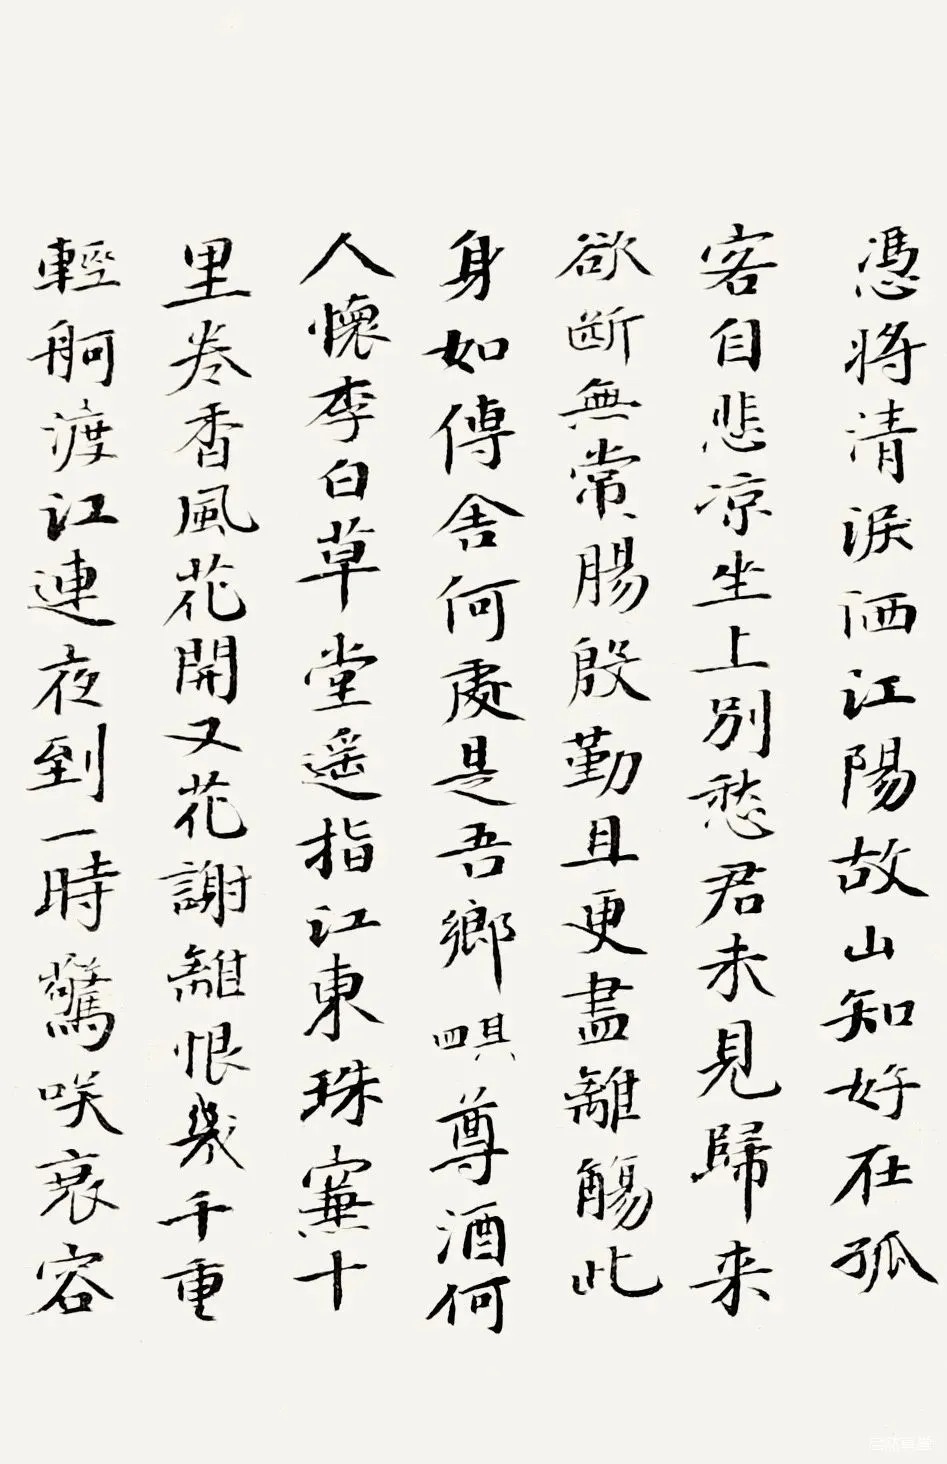 憑將清淚洒江陽故山知好在孤
客自悲凉坐上別愁君未見歸来
欲斷無常腸殷勤且更盡離觴此
身如傳舍何處是吾鄉 其四 尊酒何
人懷李白草堂遥指江東珠簾十
里卷香風花開又花謝離恨幾千重
輕舸渡江連夜到一時驚咲衰容